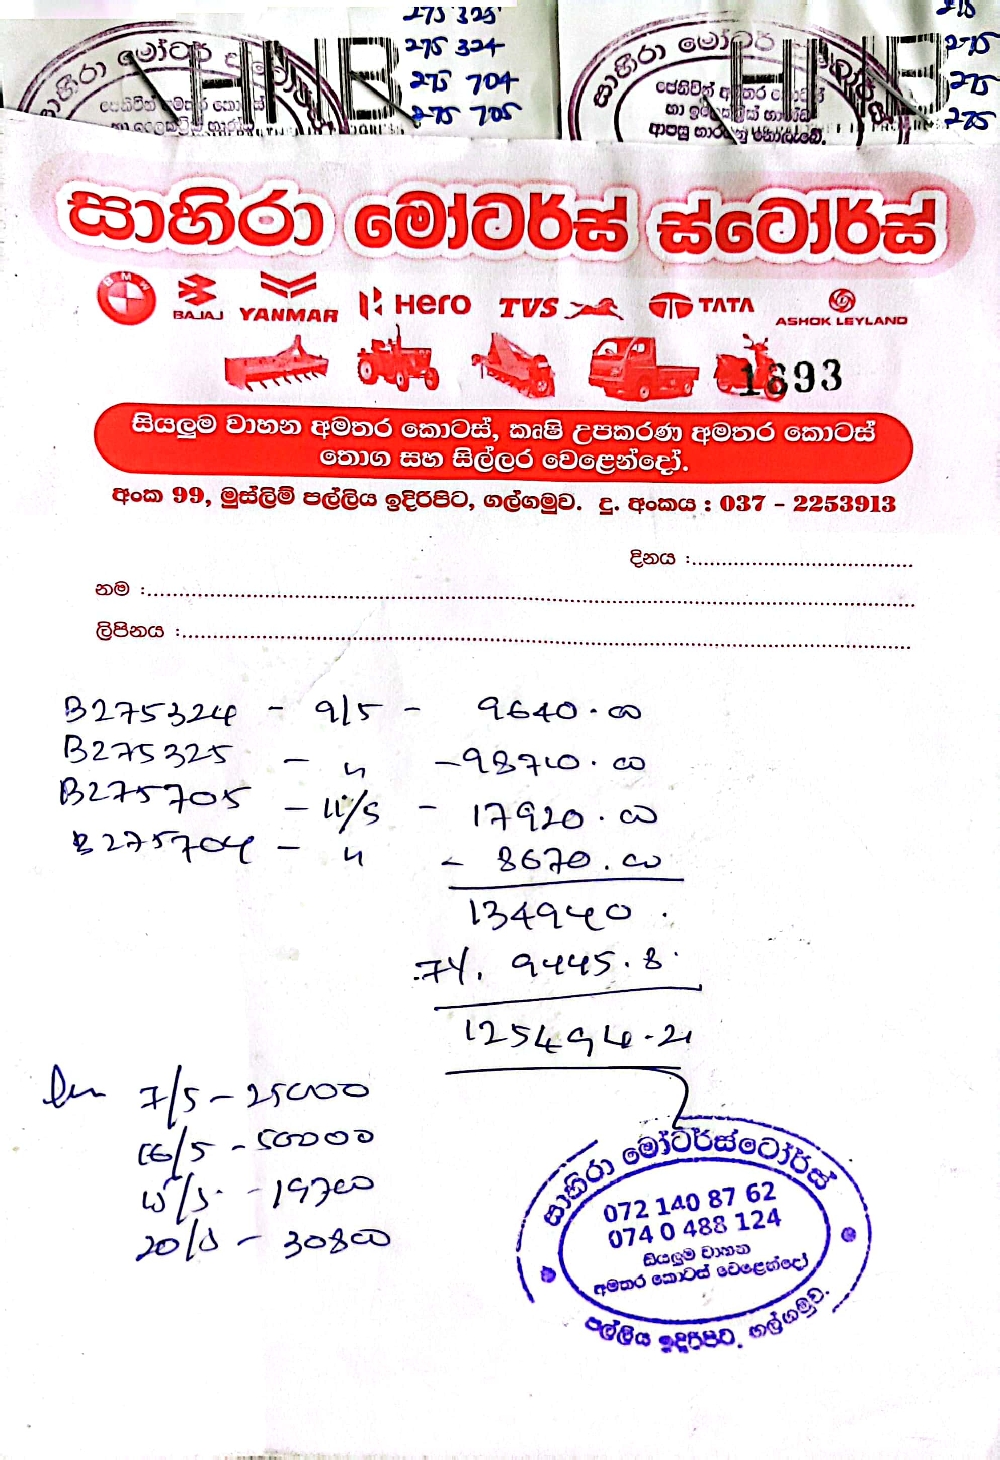 275 325
275 324
275 704
275 705
275
275
275
HNB
HNB
සාහිරා මෝටර්
සාහිරා මෝටර්
ආපසු භාරගනු නොලැබේ.
සාහිරා මෝටර්ස් ස්ටෝර්ස්
BMW
BAJAJ YANMAR Hero TVS TATA ASHOK LEYLAND
1693
සියලුම වාහන අමතර කොටස්, කෘෂි උපකරණ අමතර කොටස්
තොග සහ සිල්ලර වෙළෙන්දෝ.
අංක 99, මුස්ලිම් පල්ලිය ඉදිරිපිට, ගල්ගමුව. දු. අංකය : 037 - 2253913
දිනය :
නම :
ලිපිනය :
B275324 - 9/5 - 9640.00
B275325 - " - 98710.00
B275705 - 11/5 - 17920.00
B275704 - " - 8670.00
134940.
7%. 9445.8.
125494.2
7/5 - 25000
16/5 - 50000
15/5 - 19700
20/5 - 30800
සාහිරා මෝටර්ස්ටෝර්ස්
072 140 87 62
074 0 488 124
සියලුම වාහන
අමතර කොටස් වෙළෙන්දෝ
පල්ලිය ඉදිරිපිට, ගල්ගමුව.